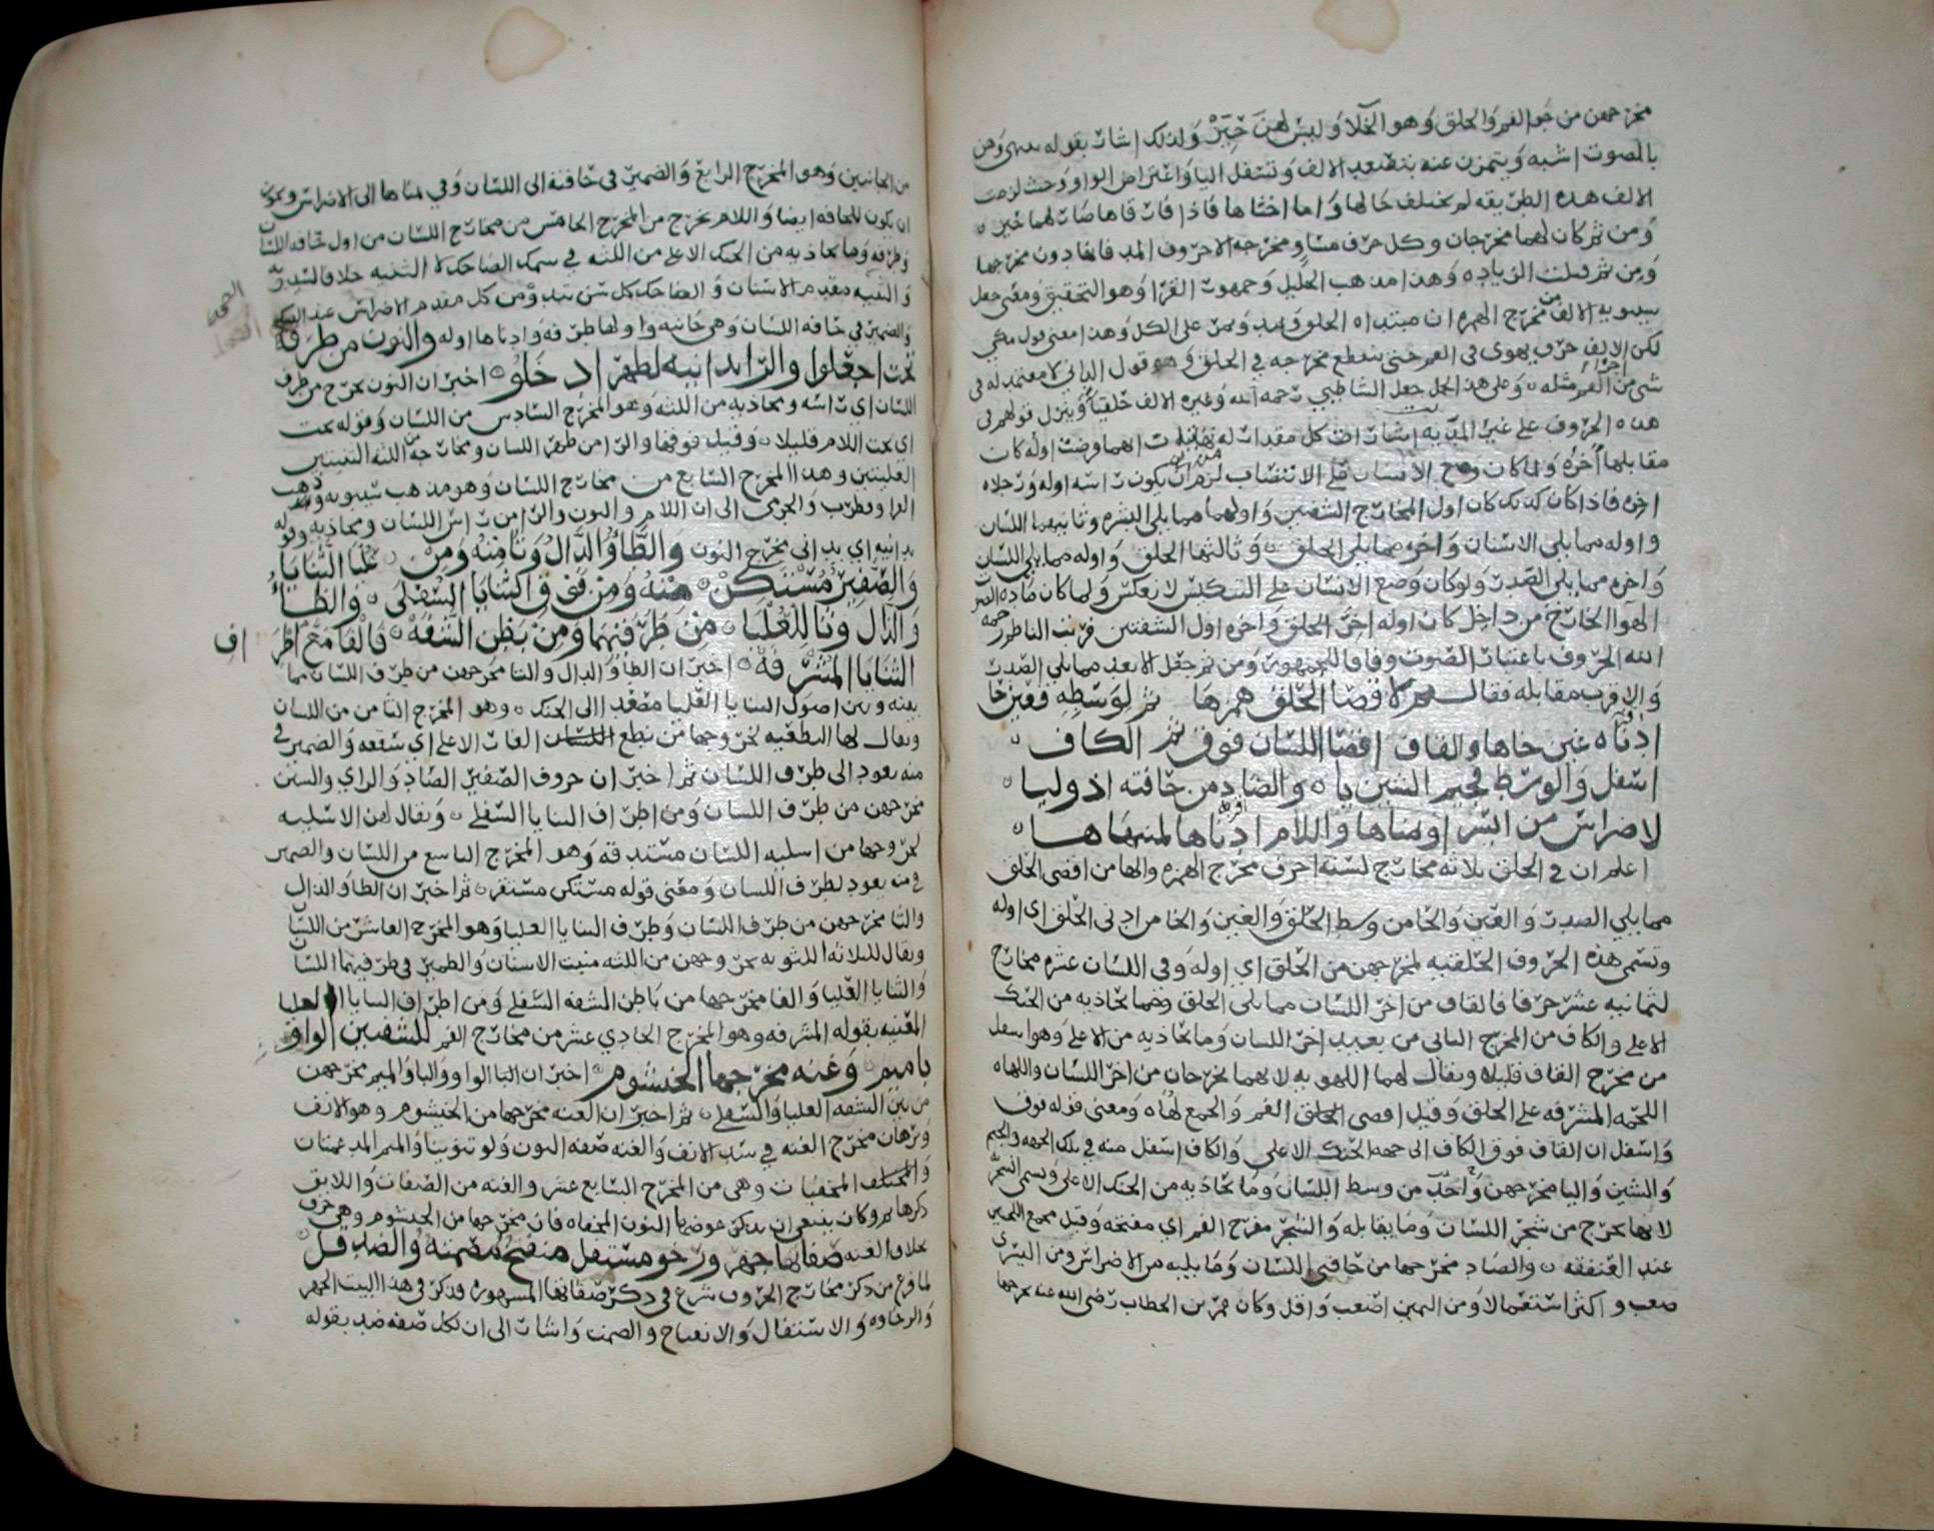 مخرجهن من جو الفم والحلق وهو الخلا وليس لهن حيز ولذلك اشار بقوله
بالصوت اشبه ويتميزن عنه بتصعد الالف وتسفل اليا واعتراض الواو وحيث لزمت
الالف هذه الطريقه لم يختلف حالها واما اختاها فاذا فارقاها صار لهما حيز
ومن ثم كان لهما مخرجان وكل حرف مساو مخرجه الا حروف المد فانها دون مخرجها
ومن ثم قبلت الزياده وهذا مذهب الخليل وجمهور القرا وهو التحقيق ومعنى جعل
سيبويه الالف من مخرج الهمزه ان مبتداه الحلق ويمد ويمر على الكل وهذا معنى قول مكي
لكن الالف حرف يهوى في الفم حتى ينقطع مخرجه في الحلق وهو قول الداني لا معتمد له في
شي من اجزا الفم مثله وعلى هذا حمل جعل الشاطبي رحمه الله وغيره الالف حلقيا وينزل قولهم في
هذه الحروف على غير المدية
مقابلها اخره ولما كان وضع الانسان على الانتصاب لزم ان يكون راسه اوله ورجلاه
اخره فاذا كان كذلك كان اول المخارج الشفتين واولهما مما يلي البشره وثانيهما اللسان
واوله مما يلي الاسنان واخره مما يلي الحلق وثالثها الحلق واوله مما يلي اللسان
واخره مما يلي الصدر ولو كان وضع الانسان على التنكيس لانعكس ولما كان ماده الصوت
الهوا الخارج من داخل كان اوله اخر الحلق واخره اول الشفتين فرتب الناظم رحمه
الله الحروف باعتبار الصوت وفاقا للجمهور ومن ثم جعل الابعد مما يلي الصدر
والاقرب مقابله فقال لاقصا الحلق همز ها ثم لوسطه فعين حا
ادناه غين خاها والقاف اقصا اللسان فوق ثم الكاف
اسفل والوسط فجيم الشين يا والضاد من حافته اذ وليا
لاضراس من ايسر او يمناها واللام ادناها لمنتهاها
اعلم ان في الحلق ثلاثه مخارج لسته احرف مخرج الهمزه والها من اقصى الحلق
مما يلي الصدر والعين والحا من وسط الحلق والغين والخا من ادنى الحلق اي اوله
وتسمى هذه الحروف الحلقيه لخروجهن من الحلق اي اوله وفي اللسان عشره مخارج
لثمانيه عشر حرفا فالقاف من اخر اللسان مما يلي الحلق وما يحاذيه من الحنك
الاعلى والكاف من المخرج الثاني من بعيد اخر اللسان وما يحاذيه من الاعلى وهو اسفل
من مخرج القاف قليلا ويقال لهما اللهويه لانهما يخرجان من اخر اللسان واللهاه
اللحمه المشرفه على الحلق وقيل اقصى الفم والجمع لهاه ومعنى قوله فوق
واسفل ان القاف فوق الكاف الى جهه الحنك الاعلى والكاف اسفل منه في تلك الجهه والجيم
والشين واليا مخرجهن واحد من وسط اللسان وما يحاذيه من الحنك الاعلى وتسمى الشجريه
لانها تخرج من شجر اللسان وما يقابله والشجر مفرج الفم اي مفتحه وقيل مجمع اللحيين
عند العنفقه والضاد مخرجها من حافتي اللسان وما يليه من الاضراس ومن اليسرى
صعب واكثر استعمالا ومن اليمين اصعب واقل وكان عمر بن الخطاب رضي الله عنه يخرجها
من الجانبين وهو المخرج الرابع والضمير في حافته الى اللسان وفي يمناها الى الاضراس ويجوز
ان يكون للحافه ايضا واللام تخرج من المخرج الخامس من مخارج اللسان من اول حافه اللسان
وطرفه وما يحاذيه من الحنك الاعلى من اللثه في سمك الضاحك لا الثنيه خلافا لسيبويه
والثنيه مقدم الاسنان والضاحك كل سن تبدو من كل مقدم الاضراس عند الضحك
والضمير في حافه اللسان وهي جانبه واولها طرفه وادناها اوله والنون من طرفه
تحت اجعلوا والرا يدانيه لظهر ادخلو اخبر ان النون تخرج من طرف
اللسان اي راسه ومحاذيه من اللثه وهو المخرج السادس من اللسان وقوله تحت
اي تحت اللام قليلا وقيل فوقها والرا من ظهر اللسان ومخارجه من اللثه الثنيتين
العليتين وهذا المخرج السابع من مخارج اللسان وهو مذهب سيبويه وذهب
الفرا وقطرب والجرمي الى ان اللام والنون والرا من راس اللسان ومحاذيه وقوله
يدانيه اي يداني مخرج النون والطا والدال وتا منه ومن عليا الثنايا
والصفير مستكن منه ومن فوق الثنايا السفلى والظا
والذال وثا للعليا من طرفيهما ومن بطن الشفه فالفا مع اطراف
الثنايا المشرفه اخبر ان الطا والدال والتا مخرجهن من طرف اللسان مما
بينه وبين اصول الثنايا العليا مصعدا الى الحنك وهو المخرج الثامن من اللسان
ويقال لها النطعيه لخروجها من نطع الغار الاعلى اي سقفه والضمير في
منه يعود الى طرف اللسان ثم اخبر ان حروف الصفير الصاد والزاي والسين
مخرجهن من طرف اللسان ومن اطراف الثنايا السفلى ويقال لهن الاسليه
لخروجها من اسليه اللسان مستدقه وهو المخرج التاسع من اللسان والضمير
في منه يعود لطرف اللسان ومعنى قوله مستكن مستقر ثم اخبر ان الظا والذال
والثا مخرجهن من طرف اللسان وطرف الثنايا العليا وهو المخرج العاشر من اللسان
ويقال للثلاثه اللثويه لخروجهن من اللثه منبت الاسنان والضمير في طرفيهما اللسان
والثنايا العليا والفا مخرجها من باطن الشفه السفلى ومن اطراف الثنايا العليا
المعنيه بقوله المشرفه وهو المخرج الحادي عشر من مخارج الفم للشفتين الواو
با ميم وغنه مخرجها الخيشوم اخبر ان الواو والبا والميم مخرجهن
من بين الشفه العليا والسفلى ثم اخبر ان الغنه مخرجها من الخيشوم وهو الانف
وبرهان مخرج الغنه في سد الانف والغنه صفه النون ولو تنوينا والميم
المخفيات وهي من المخرج السابع عشر والغنه من الصفات واللايق
ذكرها ثم وكان ينبغي ان يذكر عوضها النون المخفاه فان مخرجها من الخيشوم وهي حرف
بخلاف الغنه صفاتها جهر ورخو مستفل منفتح مصمته والضد قل
لما فرغ من ذكر مخارج الحروف شرع في ذكر صفاتها المشهوره فذكر في هذا البيت الجهر
والرخاوه والاستفال والانفتاح والصمت واشار الى ان لكل صفه ضد بقوله